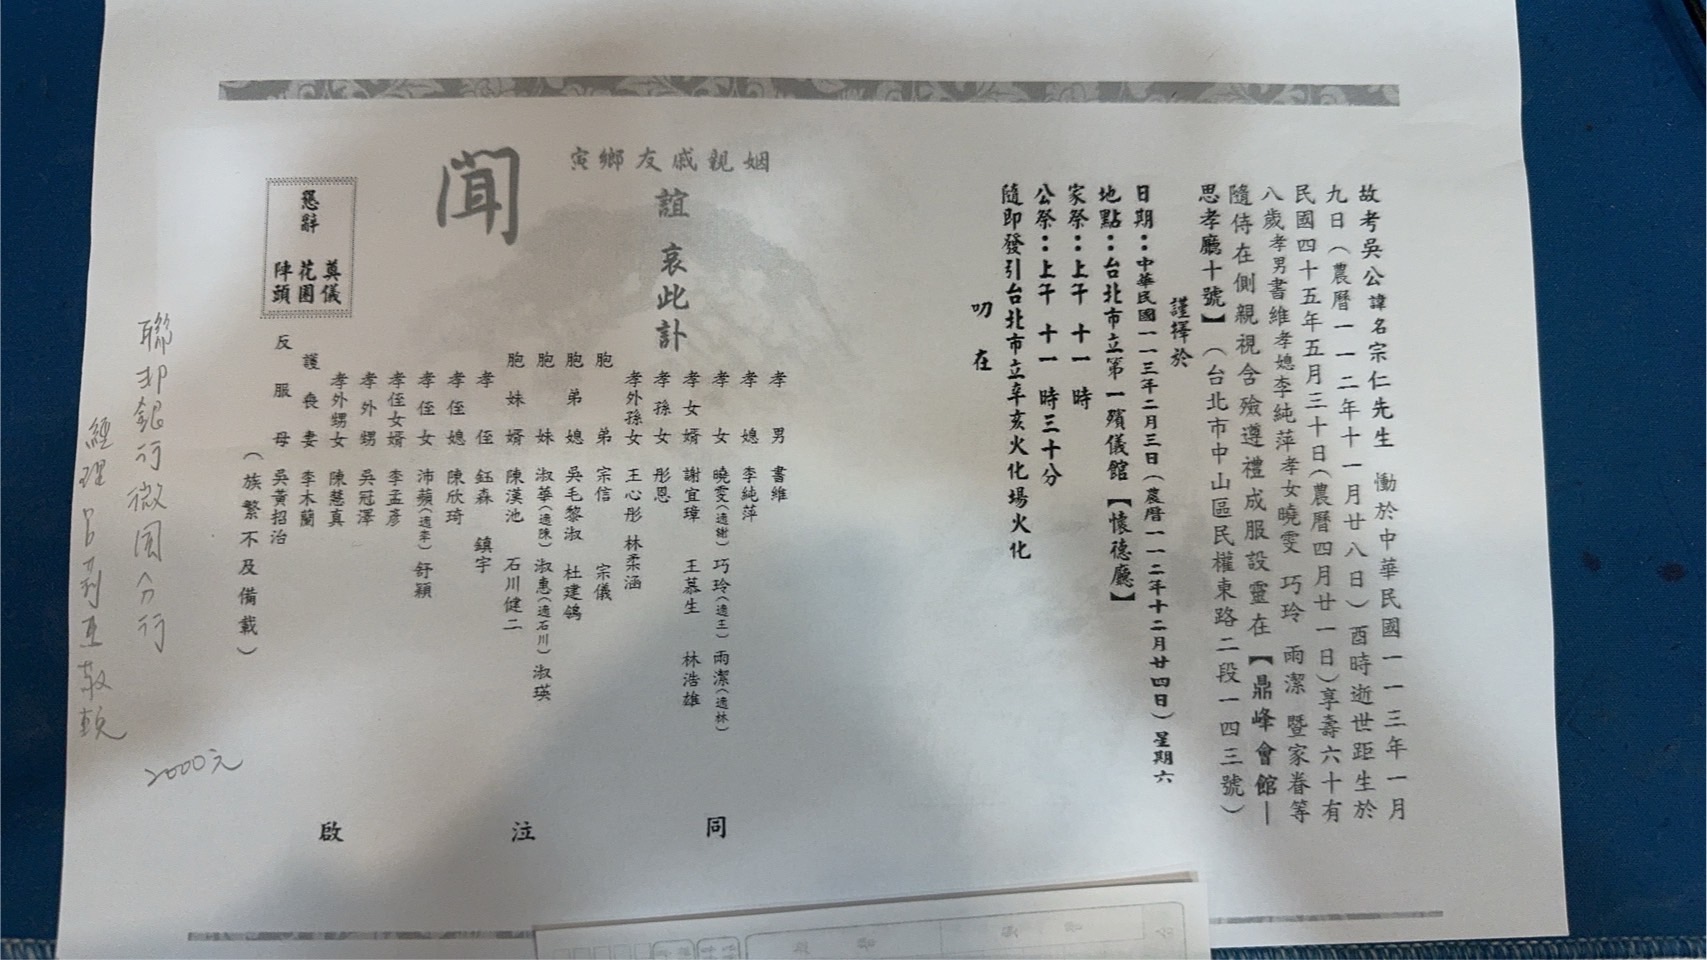 故考吳公諱名宗仁先生　慟於中華民國一一三年一月
九日（農曆一一二年十一月廿八日）酉時逝世距生於
民國四十五年五月三十日（農曆四月廿一日）享壽六十有
八歲孝男書維孝媳李純萍孝女曉雯　巧玲　雨潔　暨家眷等
隨侍在側親視含殮遵禮成服設靈在【鼎峰會館—
思孝廳十號】（台北市中山區民權東路二段一四三號）
謹擇於
日期：中華民國一一三年二月三日（農曆一一二年十二月廿四日）星期六
地點：台北市立第一殯儀館【懷德廳】
家祭：上午　十一　時
公祭：上午　十一　時三十分
隨即發引台北市立辛亥火化場火化
叨　在
姻親戚友鄉寅
誼　哀此訃
聞
孝男　書維
孝媳　李純萍
孝女　曉雯（適謝）　巧玲（適王）　雨潔（適林）
孝女婿　謝宜璋　王慕生　林浩雄
孝孫女　彤恩
孝外孫女　王心彤　林柔涵
胞弟　宗信　宗儀
胞弟媳　吳毛黎淑　杜建鴿
胞妹　淑華（適陳）　淑惠（適石川）　淑瑛
胞妹婿　陳漢池　石川健二
孝侄　鈺森　鎮宇
孝侄媳　陳欣琦
孝侄女　沛蘋（適李）　舒穎
孝侄女婿　李孟彥
孝外甥　吳冠澤
孝外甥女　陳慧真
護喪妻　李木蘭
反服母　吳黃招治
（族繁不及備載）
同　泣　啟
懇辭　奠儀　花圈　陣頭
聯邦銀行微風分行
經理
敬輓
2000元